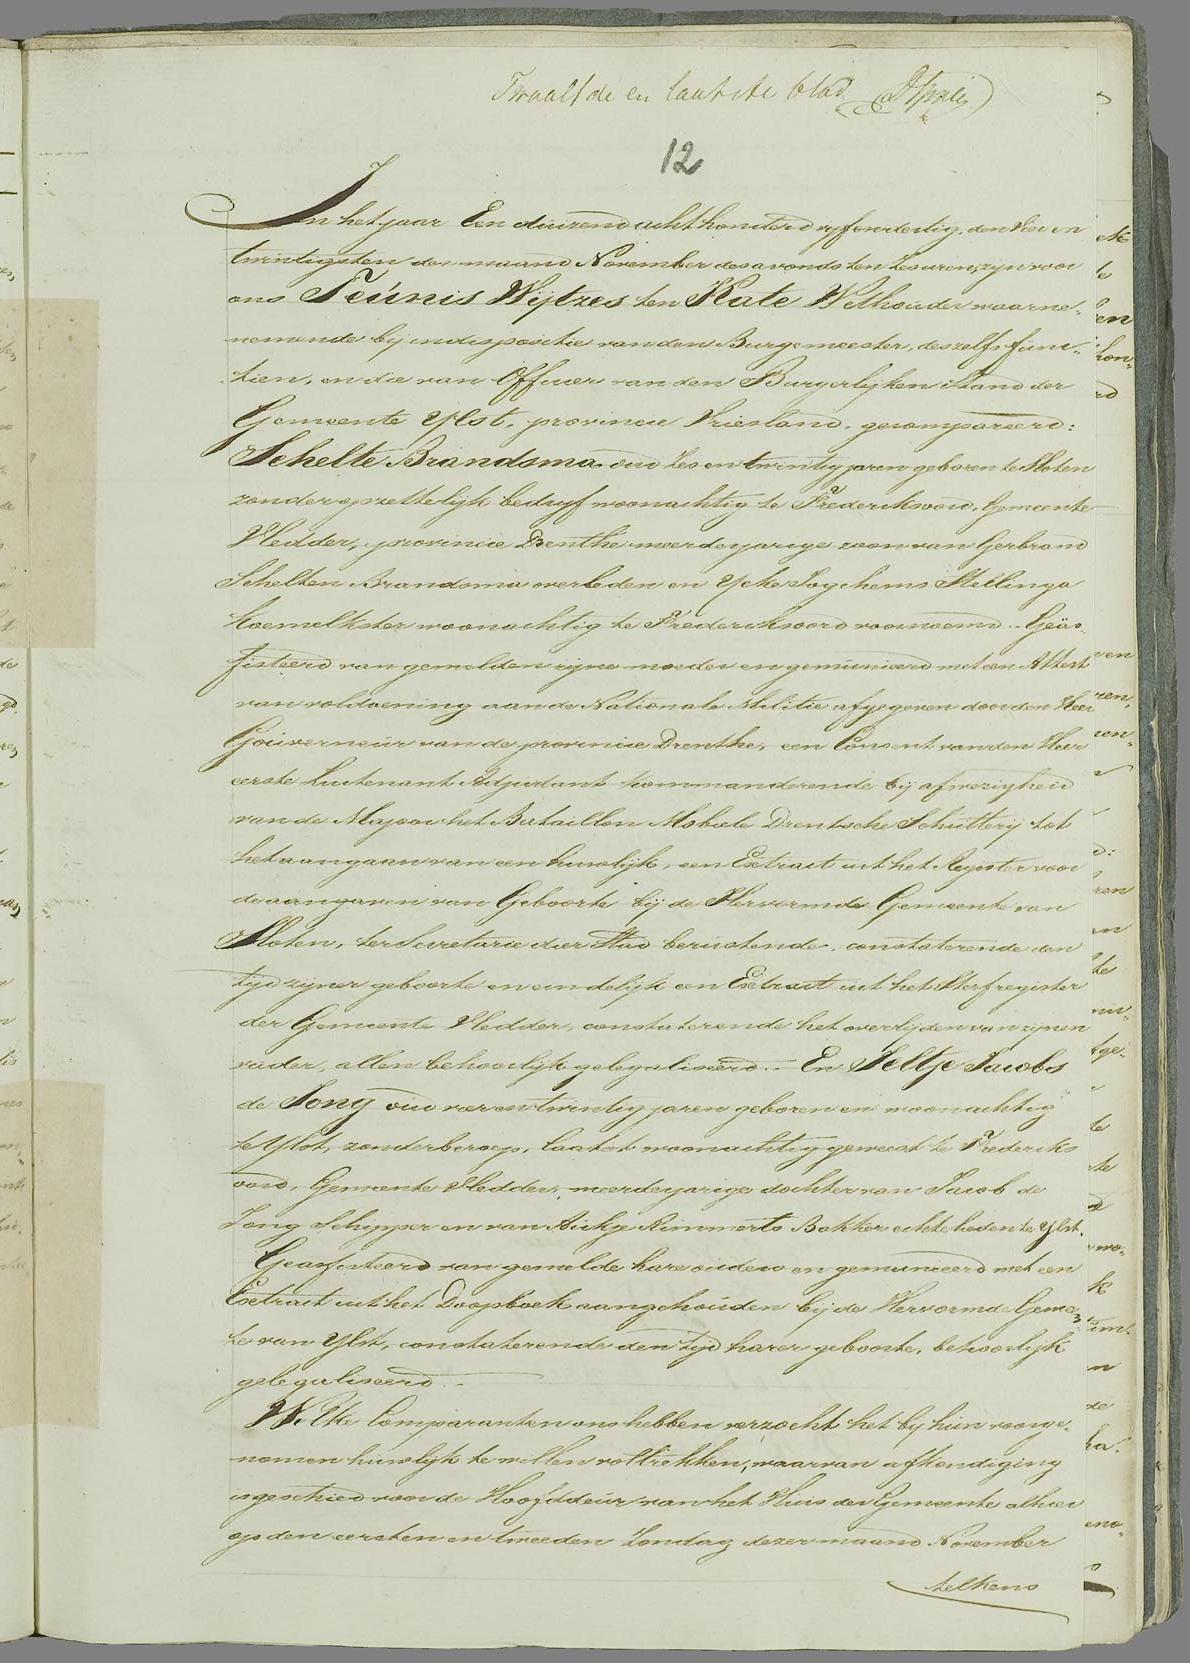 Twaalfde en laatste blad
12
In het jaar Een duizend acht honderd vyfendertig, den Vier en
twintigsten der maand November des avonds ten Zes uren, zijn voor
ons Teúnis Wijtzes ten Kate Wethouder waarne-
nemende bij indispositie van den Burgemeester, deszelfs func-
tien, en die van Officier van den Burgerlyken Stand der
Gemeente Ylst, provincie Vriesland, gecompareerd:
Schelte Brandsma oud Zes en twintig jaren geboren te Sloten
zonder opzettelijk bedryf woonachtig te Frederiksoord, Gemeente
Vledder, provincie Drenthe meerderjarige zoon van Gerbrand
Schelten Brandsma overleden en Ycke Jogchems Stellinga
Koemelkster woonachtig te Frederiksoord voornoemd. Geäs-
sisteerd van gemelden zijne moeder en gemunieerd met een Attest
van voldoening aan de Nationale Militie afgegeven door den Heer
Goúverneúr van de provincie Drenthe, een Consent van den Heer
eerste Luitenant Adjudant kommanderende bij afwezigheid
van de Majoor het Bataillon Mobiele Drentsche Schútterij tot
het aangaan van een huwlijk, een Extract uit het Register voor
de aangaven van Geboorte bij de Hervormde Gemeente van
Sloten, ter Secretarie dier Stad berustende, constaterende den
tijd zijner geboorte en eindelijk een Extract uit het Sterfregister
der Gemeente Vledder, constaterende het overlijden van zijnen
vader, allen behoorlijk gelegaliseerd. En Jeltje Jacobs
de Jong oud vier en twintig jaren geboren en woonachtig
te Ylst, zonder beroep, laatst woonachtig geweest te Frederiks
oord, Gemeente Vledder, meerderjarige dochter van Jacob de
Jong Schipper en van Aukje Rimmerts Bakker echtelieden te Ylst.
Geassisteerd van gemelde hare ouders en gemunieerd met een
Extract uit het Doopboek aangehoúden bij de Hervormde Gemeen
te van Ylst, constaterende den tijd harer geboorte, behoorlijk
gelegaliseerd.
Welke Comparanten ons hebben verzocht het bij hún voorge-
nomen huwlijk te willen voltrekken, waarvan afkondiging
is geschied voor de Hoofddeúr van het Huis der Gemeente alhier
op den eersten en tweeden Zondag dezer maand November
telkens